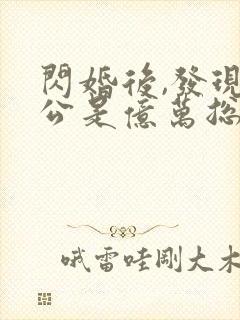 閃婚後,發現
公是億萬總
哦雷哇剛大木